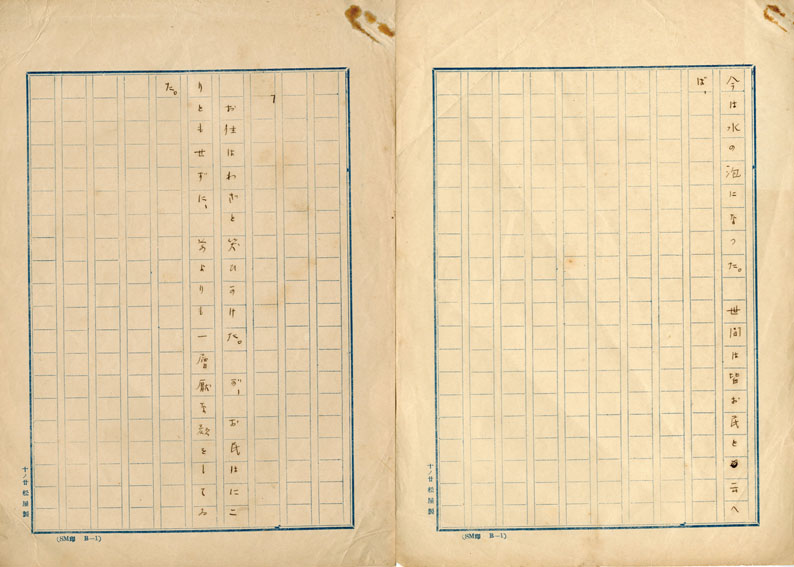 今は水の泡になつた。 世間は皆お民と云へ
ば、
十ノ廿 松屋製
B—1)
7
お住はわざと笑ひかけた。が、お民はにこ
りともせずに、 よりも一層厭な顔をしてゐ
た。
十ノ廿 松屋製
B—1)